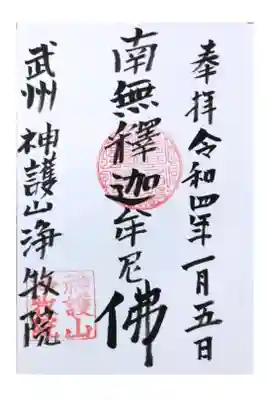 奉拝令和四年一月五日
南無釋迦牟尼佛
武州神護山浄牧院
神護山